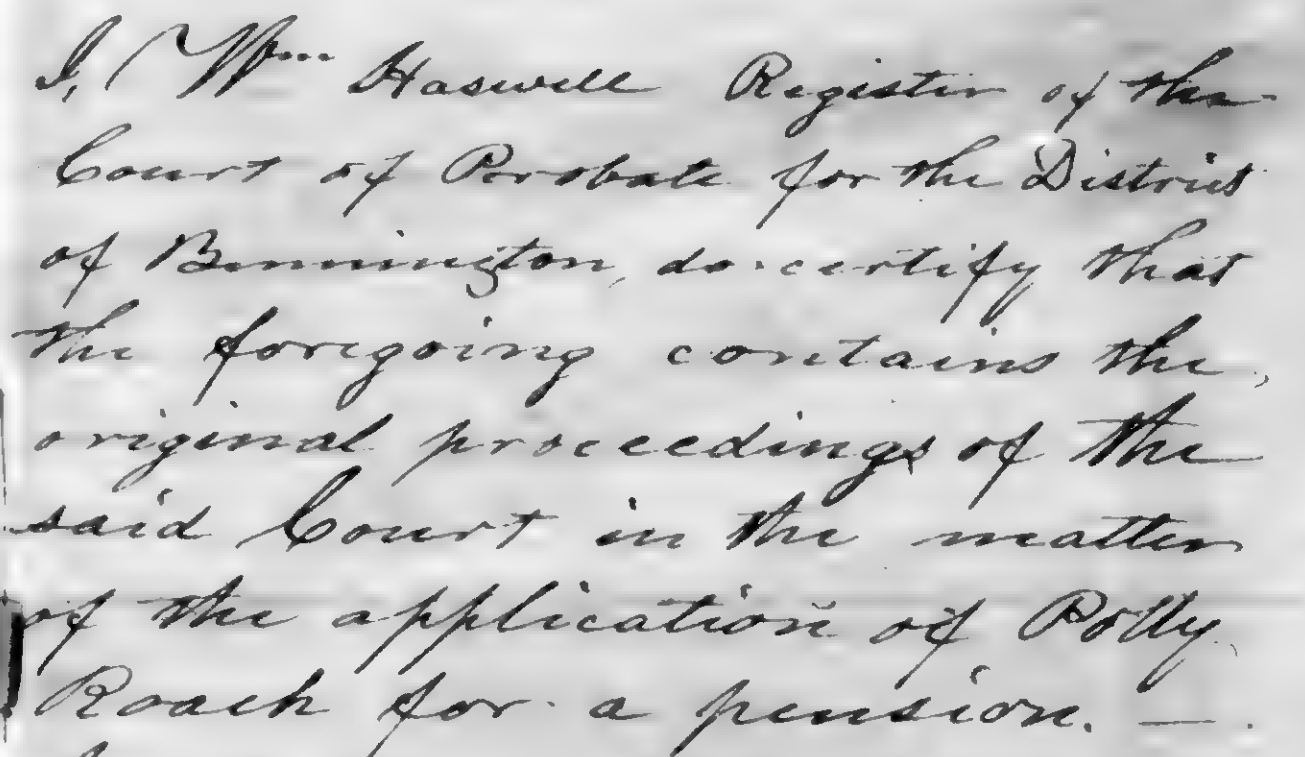 I, Wm Haswell Register of the
Court of Probate for the District
of Bennington, do certify that
the foregoing contains the
original proceedings of the
said Court in the matter
of the application of Polly
Roach for a pension. —